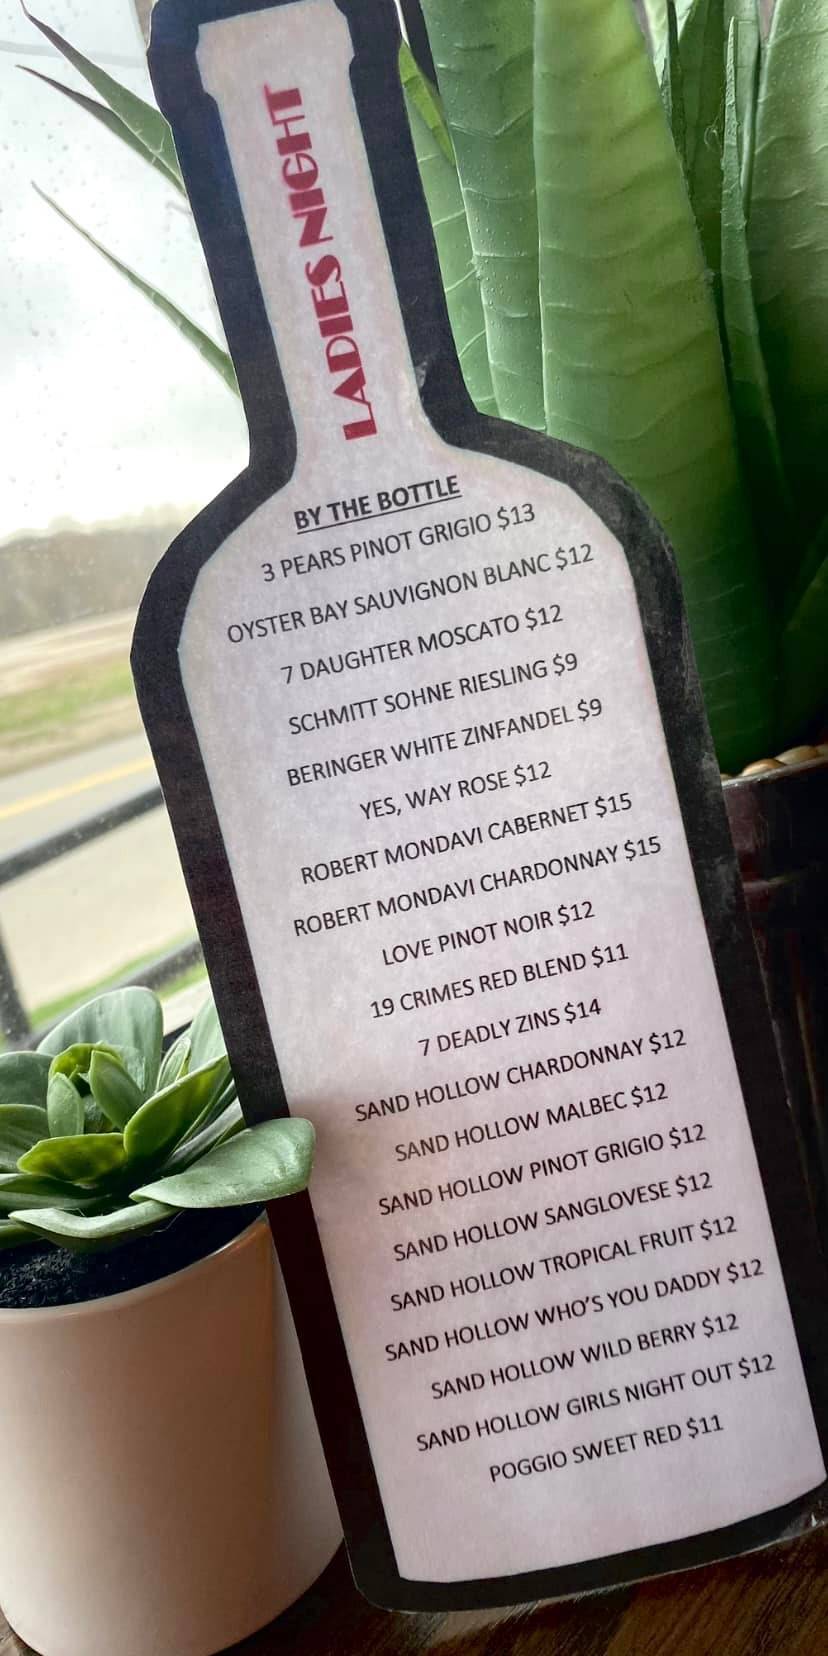 LADIES NIGHT
BY THE BOTTLE
3 PEARS PINOT GRIGIO $13
OYSTER BAY SAUVIGNON BLANC $12
7 DAUGHTER MOSCATO $12
SCHMITT SOHNE RIESLING $9
BERINGER WHITE ZINFANDEL $9
YES, WAY ROSE $12
ROBERT MONDAVI CABERNET $15
ROBERT MONDAVI CHARDONNAY $15
LOVE PINOT NOIR $12
19 CRIMES RED BLEND $11
7 DEADLY ZINS $14
SAND HOLLOW CHARDONNAY $12
SAND HOLLOW MALBEC $12
SAND HOLLOW PINOT GRIGIO $12
SAND HOLLOW SANGLOVESE $12
SAND HOLLOW TROPICAL FRUIT $12
SAND HOLLOW WHO'S YOU DADDY $12
SAND HOLLOW WILD BERRY $12
SAND HOLLOW GIRLS NIGHT OUT $12
POGGIO SWEET RED $11